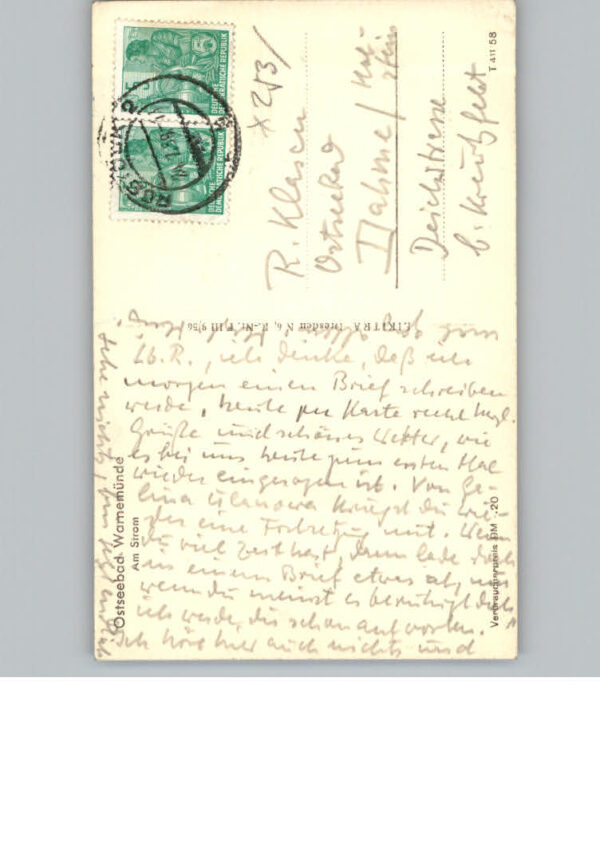 DEUTSCHE
DEMOKRATISCHE REPUBLIK
DEUTSCHE
DEMOKRATISCHE REPUBLIK
ROSTOCK
R. Klasen
Ostseebad
Dahme / Hol-
stein
Deichstrasse
b. Kreutzfeldt
T 411 58
LIKITRA Dresden N 6, R.-Nr. F III 9/56
Lb. R., ich denke, daß ich
morgen einen Brief schreiben
werde, heute per Karte recht hzgl.
Grüße und schönes Wetter, wie
es bei uns heute zum ersten Mal
wieder eingezogen ist. Von Ge-
lina Ulanowa kriegst du wie-
der eine Fortsetzung mit. Wenn
du viel Zeit hast, dann lade doch
in einem Brief etwas ab, und
wenn du meinst es beruhigt dich
ich werde dir schon antworten.
Ich höre hier auch nichts und
sehe nichts, bin
Ostseebad Warnemünde
Am Strom
Verbraucherpreis DM -.20